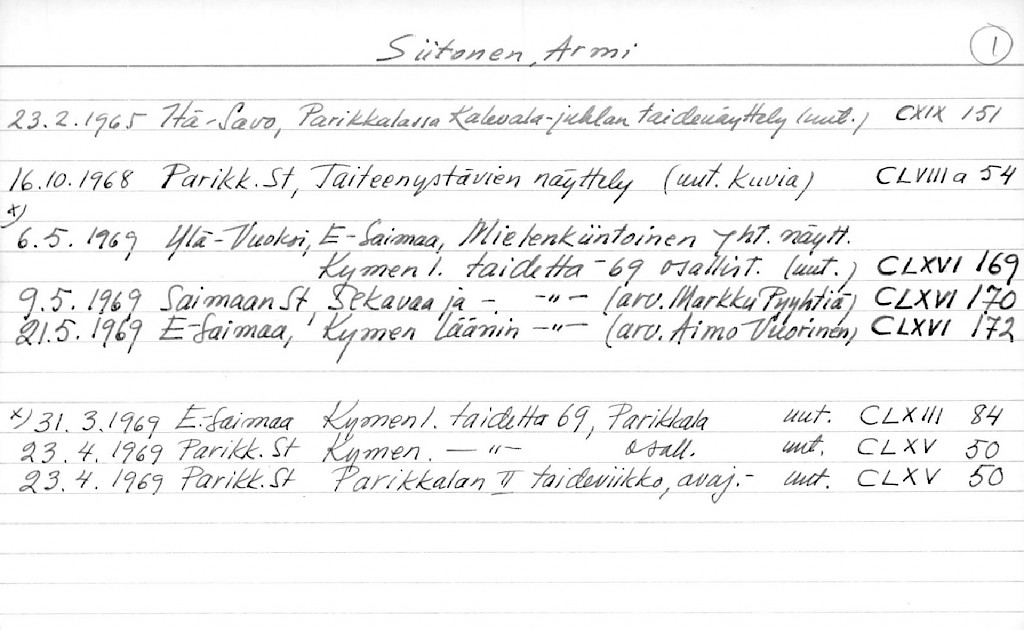 Siitonen, Armi 1
23.2.1965 Itä-Savo, Parikkalassa Kalevala-juhlan taidenäyttely (uut.) CXIX 151
16.10.1968 Parikk. St, Taiteenystävien näyttely (uut. kuvia) CLVIII a 54
x)
6.5. 1969 Ylä-Vuoksi, E-Saimaa, Mielenkiintoinen yht. näytt.
Kymen l. taidetta -69 osallist. (uut.) CLXVI 169
9.5. 1969 Saimaan St, Sekavaa ja - -"- (arv. Markku Pyyhtiä) CLXVI 170
21.5. 1969 E-Saimaa, Kymen Läänin -"- (arv. Aimo Vuorinen) CLXVI 172
x) 31. 3.1969 E-Saimaa Kymen l. taidetta 69, Parikkala uut. CLXIII 84
23. 4. 1969 Parikk. St Kymen. -"- osall. uut. CLXV 50
23. 4. 1969 Parikk. St Parikkalan II taideviikko, avaj.- uut. CLXV 50